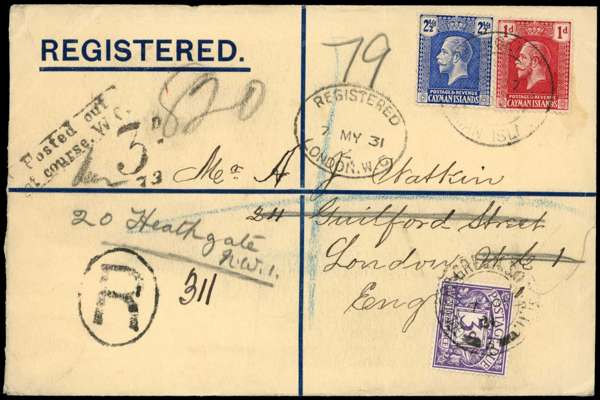 REGISTERED.
79
820
2½d 2½d
POSTAGE & REVENUE
CAYMAN ISLANDS
1d 1d
POSTAGE & REVENUE
CAYMAN ISLANDS
REGISTERED
7 MY 31
LONDON. W.C.
Posted out
of course. W.C.
3D.
73
Mr A J Watkin
311 Guilford Street
London W.C.1
Eng
20 Heathgate
N.W.1.
R
311
POSTAGE DUE
3D